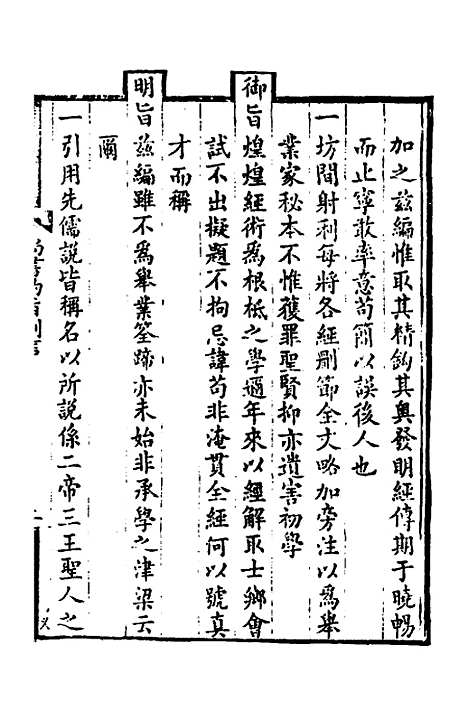 加之兹編惟取其精鈎其奥發明經傳期于曉暢
而止寧敢率意苟簡以誤後人也
一坊間射利每將各經刪節全文略加旁注以為舉
業家秘本不惟獲罪聖賢抑亦遺害初學
御旨煌煌經術為根柢之學邇年來以經解取士鄉會
試不出擬題不拘忌諱苟非淹貫全經何以號真
才而稱
明旨兹編雖不為舉業筌蹄亦未始非承學之津梁云
爾
一引用先儒説皆稱名以所説係二帝三王聖人之